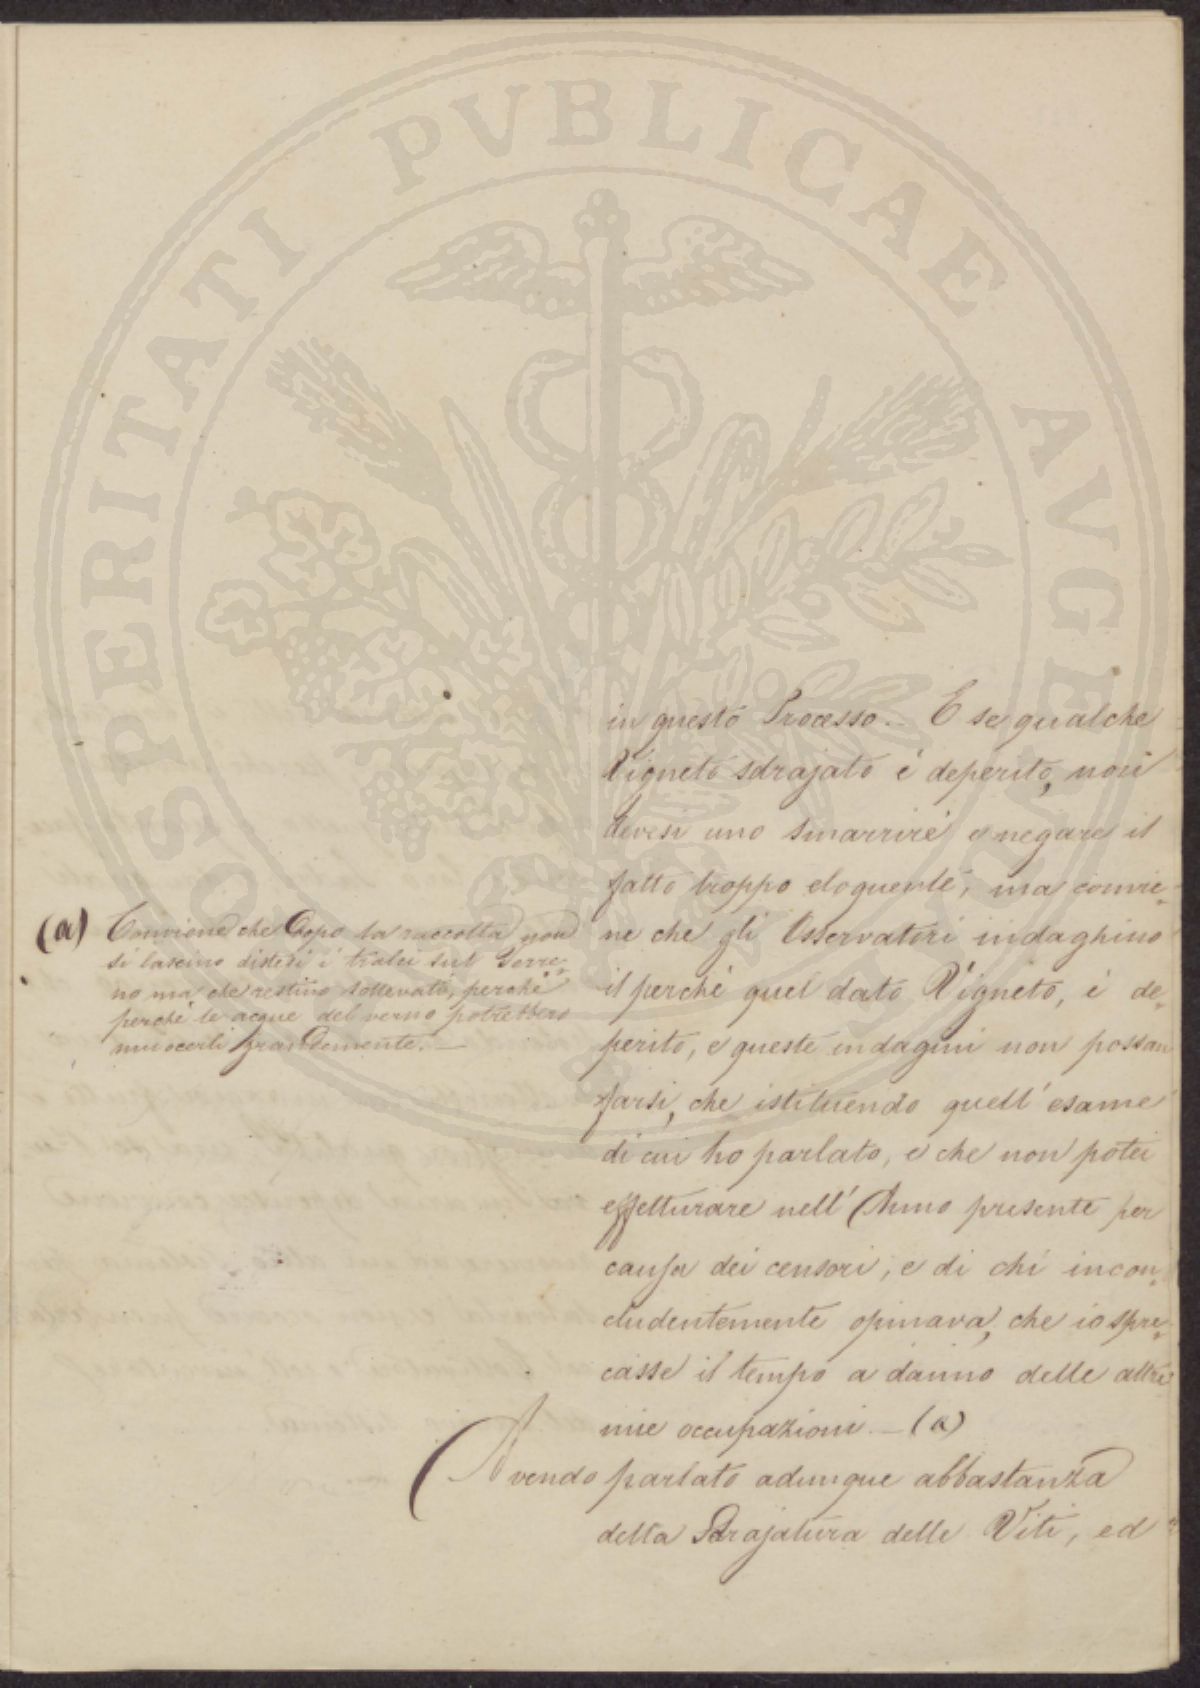 PROSPERITATI PVBLICAE AVGENDAE
in questo Processo. - E se qualche
Vigneto sdrajato è deperito, non
devesi uno smarrire e negare il
fatto troppo eloquente, ma convie-
ne che gli Osservatori indaghino
il perchè quel dato Vigneto, è de-
perito, e queste indagini non possan
farsi, che istituendo quell' esame
di cui ho parlato, e che non potei
effetturare nell' Anno presente per
causa dei censori, e di chi incon-
cludentemente opinava, che io spre-
casse il tempo a danno delle altre
mie occupazioni. - (a)
Avendo parlato adunque abbastanza
della Sdrajatura delle Viti, ed
(a) Conviene che dopo la raccolta non
si lascino distesi i tralci sul Terre-
no ma che restino sollevati, perchè
perchè le acque del verno potrebbero
nuocerli grandemente. -